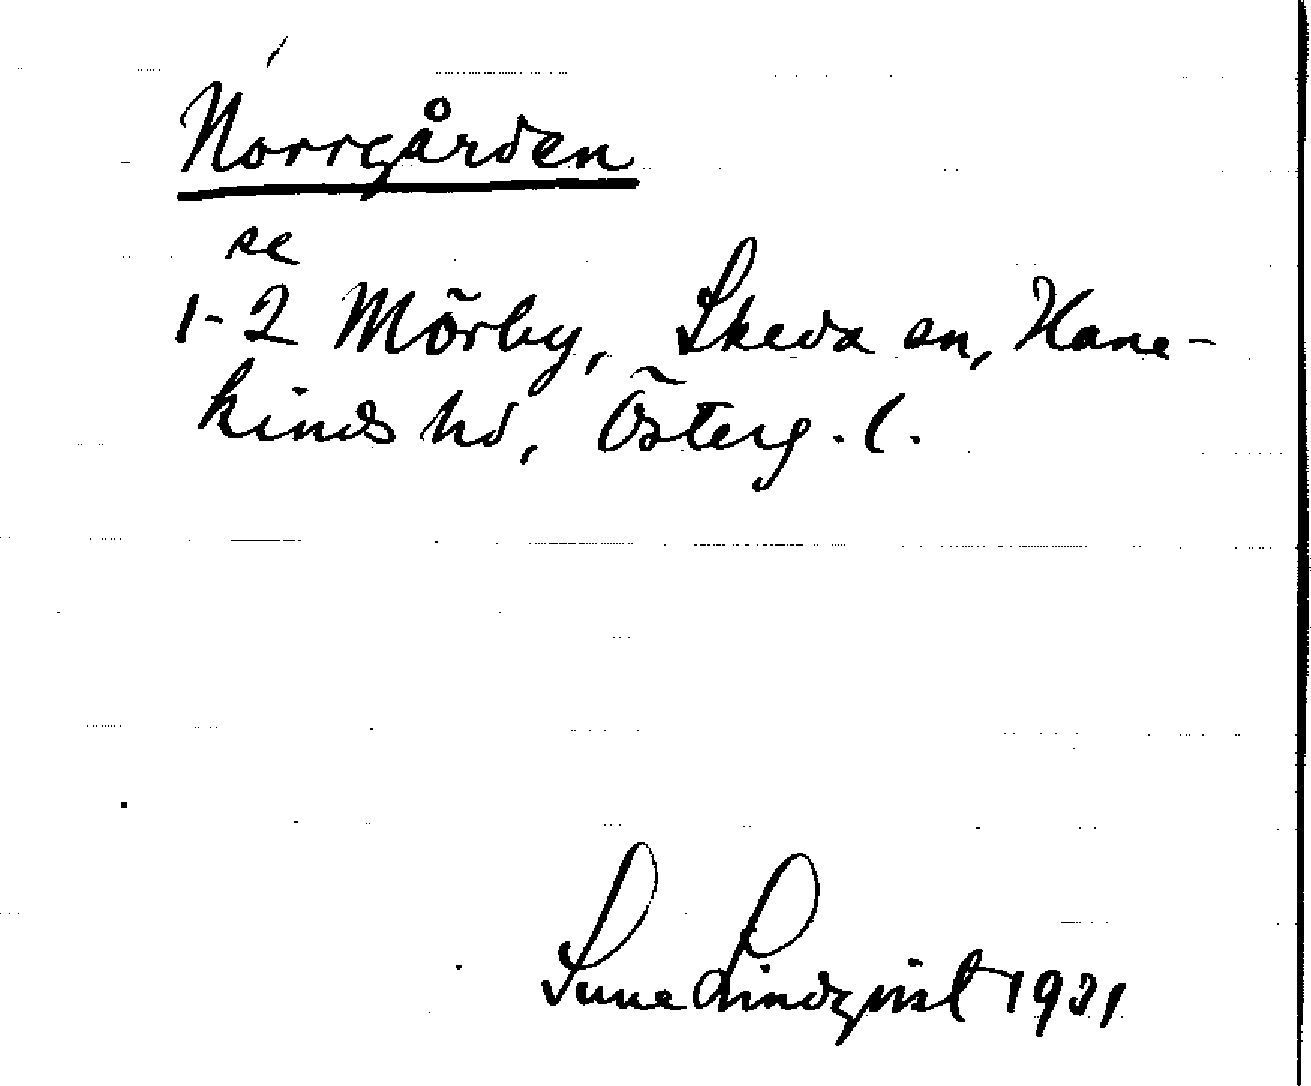 Norrgården
se
1-2 Mörby, Skeda sn, Hane-
kinds hd, Österg. l.
Sune Lindqvist 1931